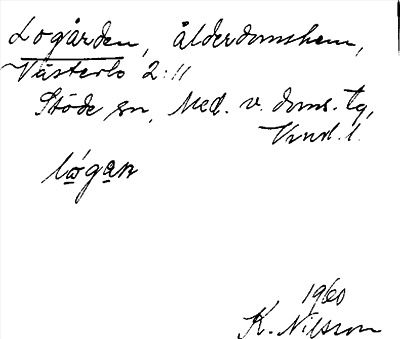 Logården, ålderdomshem,
Västerlo 2:11
Stöde sn, Med. v. doms. tg,
Vnrl. l.
lógan
1960
K. Nilsson